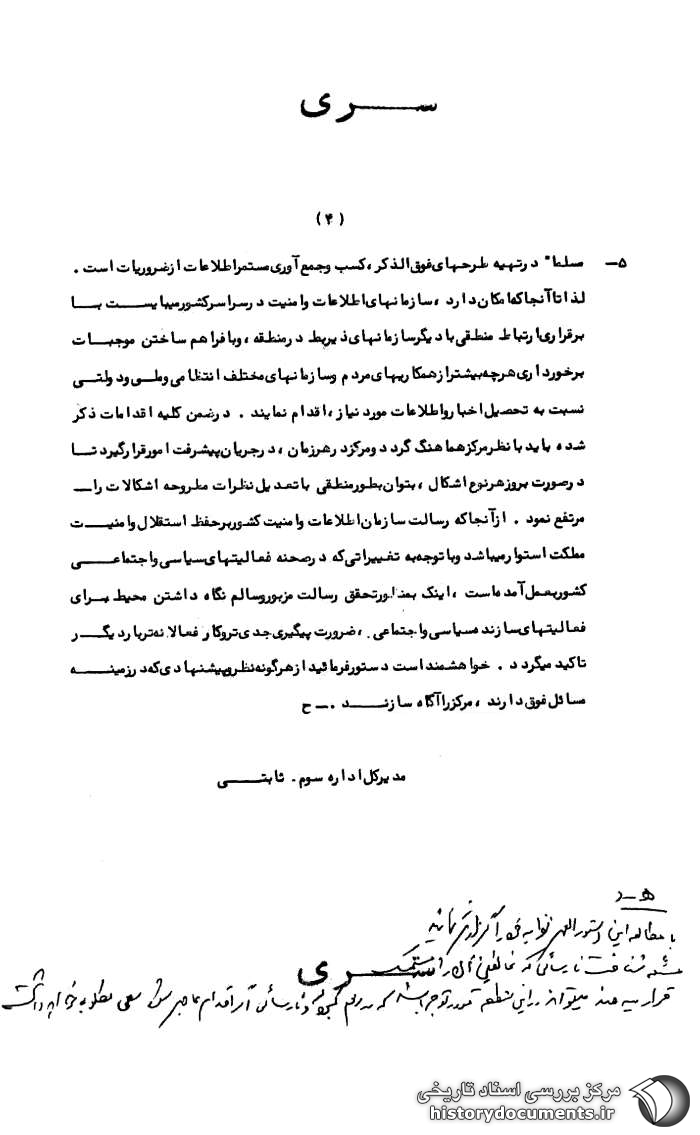 ســــری
(۴)
۵ــ مسلما" درتهیه طرحهای فوق الذکر ، کسب وجمع آوری مستمراطلاعات ازضروریات است .
لذا تا آنجاکه امکان دارد ، سازمانهای اطلاعات وامنیت درسراسرکشورمیبایست بـا
برقراری ارتباط منطقی با دیگرسازمانهای ذیربط درمنطقه ، وبا فراهم ساختن موجبات
برخورداری هرچه بیشتراز همکاریهای مردم وسازمانهای مختلف انتظامی وملی ودولتـی
نسبت به تحصیل اخبارواطلاعات مورد نیاز ، اقدام نمایند . درضمن کلیه اقدامات ذکر
شده باید با نظرمرکزهماهنگ گردد ومرکزدرهرزمان ، درجریان پیشرفت امورقرارگیرد تـا
درصورت بروزهرنوع اشکال ، بتوان بطورمنطقی باتعدیل نظرات مطروحه اشکالات را ــ
مرتفع نمود . ازآنجاکه رسالت سازمان اطلاعات وامنیت کشوربرحفظ استقلال وامنیـت
مملکت استوارمیباشد وبا توجه به تغییراتی که درصحنه فعالیتهای سیاسی واجتماعـی
کشوربعمل آمده است ، اینک بمنظورتحقق رسالت مزبوروسالم نگاه داشتن محیط بـرای
فعالیتهای سازنده سیاسی واجتماعی ، ضرورت پیگیری جدی تروکارفعالانه تربار دیگـر
تاکید میگردد . خواهشمند است دستورفرمائید ازهرگونه نظروپیشنهادی که درزمینـه
مسائل فوق دارند ، مرکزرا آگاه سازنــد . ــ ح
مدیرکل اداره سوم . ثابتــی
با مطالعه این دستورالعمل
که
ســــری
قرار میدهند میتواند در این منطقه مورد توجه باشد که
مرکز بررسی اسناد تاریخی
historydocuments.ir